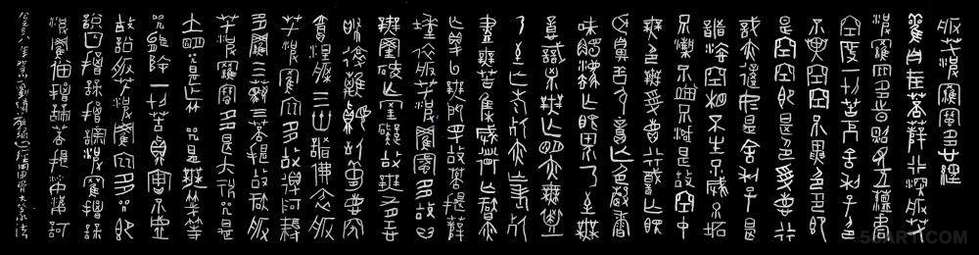 般若波羅蜜多心經
觀自在菩薩行深般若
波羅蜜多時照見五蘊皆
空度一切苦厄舍利子色
不異空空不異色色即
是空空即是色受想行
識亦復如是舍利子是
諸法空相不生不滅不垢
不淨不增不減是故空中
無色無受想行識無眼
耳鼻舌身意無色聲香
味觸法無眼界乃至無
意識界無無明亦無無明
盡乃至無老死亦無老死
盡無苦集滅道無智亦
無得以無所得故菩提薩
埵依般若波羅蜜多故心
無罣礙無罣礙故無有恐
怖遠離顛倒夢想究
竟涅槃三世諸佛依般
若波羅蜜多故得阿耨
多羅三藐三菩提故知般
若波羅蜜多是大神咒是
大明咒是無上咒是無等等
咒能除一切苦真實不虛
故說般若波羅蜜多咒即
說咒曰揭諦揭諦波羅揭諦
波羅僧揭諦菩提薩婆訶